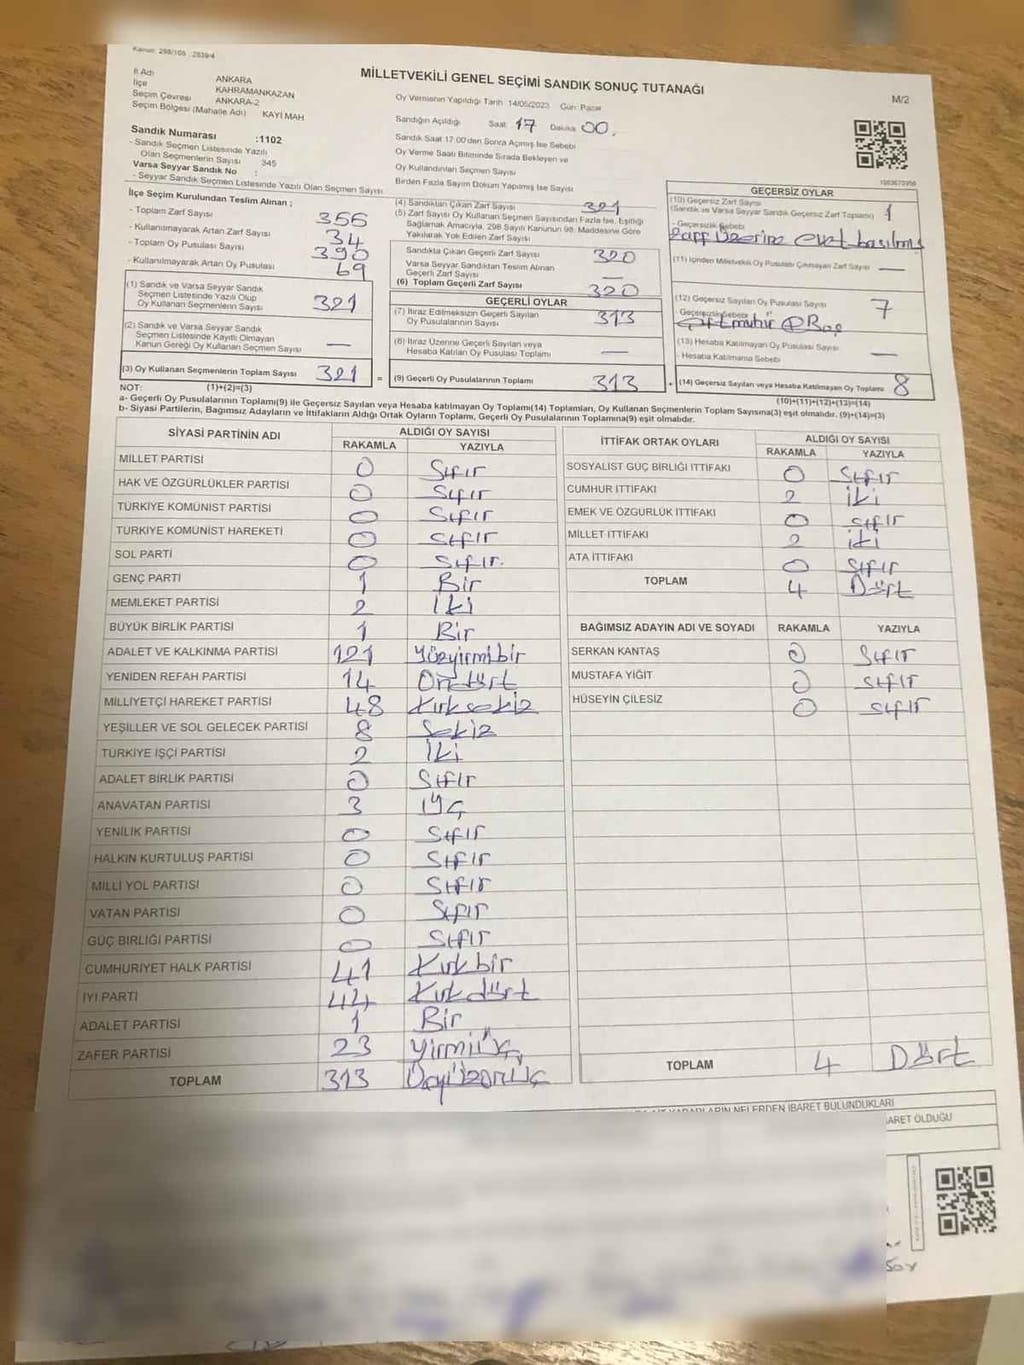 Kanun: 298/105 2839/4
MİLLETVEKİLİ GENEL SEÇİMİ SANDIK SONUÇ TUTANAĞI
M/2
İl Adı ANKARA
İlçe KAHRAMANKAZAN
Seçim Çevresi ANKARA-2
Seçim Bölgesi (Mahalle Adı) KAYI MAH
Oy Vermenin Yapıldığı Tarih 14/05/2023 Gün: Pazar
Sandığın Açıldığı Saat 17 Dakika 00.
Sandık Numarası :1102
- Sandık Seçmen Listesinde Yazılı
Olan Seçmenlerin Sayısı 345
Varsa Seyyar Sandık No :
- Seyyar Sandık Seçmen Listesinde Yazılı Olan Seçmen Sayısı
Sandık Saat 17:00'den Sonra Açılmış İse Sebebi
Oy Verme Saati Bitiminde Sırada Bekleyen ve
Oy Kullandırılan Seçmen Sayısı
Birden Fazla Sayım Döküm Yapılmış İse Sayısı
İlçe Seçim Kurulundan Teslim Alınan ;
- Toplam Zarf Sayısı 356
- Kullanılmayarak Artan Zarf Sayısı 34
- Toplam Oy Pusulası Sayısı 390
- Kullanılmayarak Artan Oy Pusulası 69
(1) Sandık ve Varsa Seyyar Sandık
Seçmen Listesinde Yazılı Olup
Oy Kullanan Seçmenlerin Sayısı 321
(2) Sandık ve Varsa Seyyar Sandık
Seçmen Listesinde Kayıtlı Olmayan
Kanun Gereği Oy Kullanan Seçmen Sayısı —
(3) Oy Kullanan Seçmenlerin Toplam Sayısı 321
(4) Sandıktan Çıkan Zarf Sayısı 321
(5) Zarf Sayısı Oy Kullanan Seçmen Sayısından Fazla İse, Eşitliği
Sağlamak Amacıyla, 298 Sayılı Kanunun 98. Maddesine Göre
Yakılarak Yok Edilen Zarf Sayısı
Sandıkta Çıkan Geçerli Zarf Sayısı 320
Varsa Seyyar Sandıktan Teslim Alınan
Geçerli Zarf Sayısı —
(6) Toplam Geçerli Zarf Sayısı 320
GEÇERLİ OYLAR
(7) İtiraz Edilmeksizin Geçerli Sayılan
Oy Pusulalarının Sayısı 313
(8) İtiraz Üzerine Geçerli Sayılan veya
Hesaba Katılan Oy Pusulası Toplamı —
= (9) Geçerli Oy Pusulalarının Toplamı 313
GEÇERSİZ OYLAR
(10) Geçersiz Zarf Sayısı
(Sandık ve Varsa Seyyar Sandık Geçersiz Zarf Toplamı) 1
- Geçersizlik Sebebi
Zarf Üzerine evet basılmış
(11) İçinden Milletvekili Oy Pusulası Çıkmayan Zarf Sayısı —
(12) Geçersiz Sayılan Oy Pusulası Sayısı 7
- Geçersizlik Sebebi
(13) Hesaba Katılmayan Oy Pusulası Sayısı —
- Hesaba Katılmama Sebebi
+ (14) Geçersiz Sayılan veya Hesaba Katılmayan Oy Toplamı 8
NOT: (1)+(2)=(3)
(10)+(11)+(12)+(13)=(14)
a- Geçerli Oy Pusulalarının Toplamı(9) ile Geçersiz Sayılan veya Hesaba katılmayan Oy Toplamı(14) Toplamları, Oy Kullanan Seçmenlerin Toplam Sayısına(3) eşit olmalıdır. (9)+(14)=(3)
b- Siyasi Partilerin, Bağımsız Adayların ve İttifakların Aldığı Ortak Oyların Toplamı, Geçerli Oy Pusulalarının Toplamına(9) eşit olmalıdır.
SİYASİ PARTİNİN ADI ALDIĞI OY SAYISI
RAKAMLA YAZIYLA
MİLLET PARTİSİ 0 Sıfır
HAK VE ÖZGÜRLÜKLER PARTİSİ 0 Sıfır
TÜRKİYE KOMÜNİST PARTİSİ 0 Sıfır
TÜRKİYE KOMÜNİST HAREKETİ 0 Sıfır
SOL PARTİ 0 Sıfır.
GENÇ PARTİ 1 Bir
MEMLEKET PARTİSİ 2 İki
BÜYÜK BİRLİK PARTİSİ 1 Bir
ADALET VE KALKINMA PARTİSİ 121 Yüzyirmibir
YENİDEN REFAH PARTİSİ 14 Ondört
MİLLİYETÇİ HAREKET PARTİSİ 48 Kırksekiz
YEŞİLLER VE SOL GELECEK PARTİSİ 8 Sekiz
TÜRKİYE İŞÇİ PARTİSİ 2 İki
ADALET BİRLİK PARTİSİ 0 Sıfır
ANAVATAN PARTİSİ 3 Üç
YENİLİK PARTİSİ 0 Sıfır
HALKIN KURTULUŞ PARTİSİ 0 Sıfır
MİLLİ YOL PARTİSİ 0 Sıfır
VATAN PARTİSİ 0 Sıfır
GÜÇ BİRLİĞİ PARTİSİ 0 Sıfır
CUMHURİYET HALK PARTİSİ 41 Kırkbir
İYİ PARTİ 44 Kırkdört
ADALET PARTİSİ 1 Bir
ZAFER PARTİSİ 23 Yirmiüç
TOPLAM 313 Üçyüzonüç
İTTİFAK ORTAK OYLARI ALDIĞI OY SAYISI
RAKAMLA YAZIYLA
SOSYALİST GÜÇ BİRLİĞİ İTTİFAKI 0 Sıfır
CUMHUR İTTİFAKI 2 İki
EMEK VE ÖZGÜRLÜK İTTİFAKI 0 Sıfır
MİLLET İTTİFAKI 2 İki
ATA İTTİFAKI 0 Sıfır
TOPLAM 4 Dört
BAĞIMSIZ ADAYIN ADI VE SOYADI RAKAMLA YAZIYLA
SERKAN KANTAŞ 0 Sıfır
MUSTAFA YİĞİT 0 Sıfır
HÜSEYİN ÇİLESİZ 0 Sıfır
TOPLAM 4 Dört
NELERDEN İBARET BULUNDUKLARI
OLDUĞU